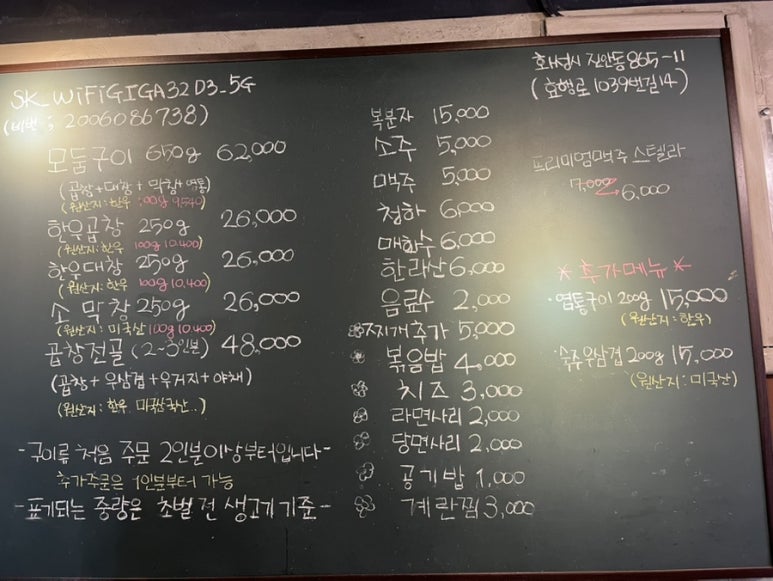 SK_WiFiGIGA32D3_5G
(비번 ; 2006086738)
모둠구이 650g 62,000
(곱창+대창+막창+염통)
(원산지:한우 100g 9,540)
한우곱창 250g 26,000
(원산지:한우 100g 10,400)
한우대창 250g 26,000
(원산지:한우 100g 10,400)
소 막창 250g 26,000
(원산지:미국산 100g 10,400)
곱창전골 (2-3인분) 48,000
(곱창+우삼겹+우거지+야채)
(원산지:한우, 미국산국산..)
-구이류 처음 주문 2인분이상부터입니다-
추가주문은 1인분부터 가능
-표기되는 중량은 초벌 전 생고기 기준-
복분자 15,000
소주 5,000
맥주 5,000
청하 6,000
매화수 6,000
한라산 6,000
음료수 2,000
찌개추가 5,000
볶음밥 4,000
치즈 3,000
라면사리 2,000
당면사리 2,000
공기밥 1,000
계란찜 3,000
화성시 진안동 865-11
(효행로 1039번길 14)
프리미엄맥주 스텔라
7,000 6,000
*추가메뉴*
·염통구이 200g 15,000
(원산지:한우)
·숙주우삼겹 200g 15,000
(원산지:미국산)